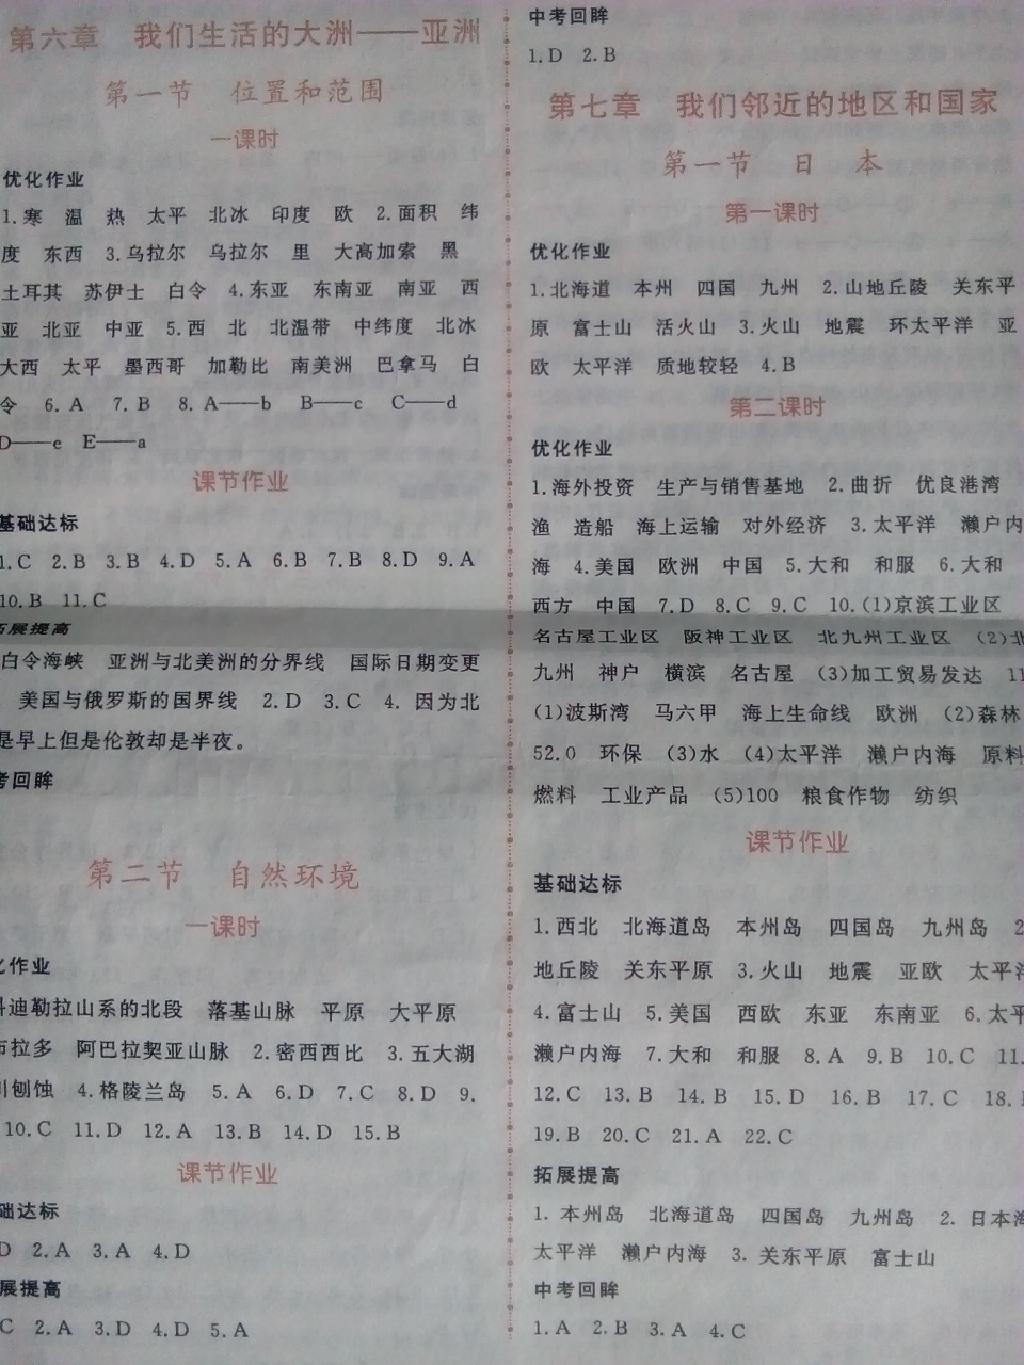 第六章 我们生活的大洲——亚洲
第一节 位置和范围
一课时
优化作业
1.寒 温 热 太平 北冰 印度 欧 2.面积 纬
度 东西 3.乌拉尔 乌拉尔 里 大高加索 黑
土耳其 苏伊士 白令 4.东亚 东南亚 南亚 西
亚 北亚 中亚 5.西 北 北温带 中纬度 北冰
大西 太平 墨西哥 加勒比 南美洲 巴拿马 白
令 6.A 7.B 8.A——b B——c C——d
D——e E——a
课节作业
基础达标
1.C 2.B 3.B 4.D 5.A 6.B 7.B 8.D 9.A
10.B 11.C
拓展提高
白令海峡 亚洲与北美洲的分界线 国际日期变更
美国与俄罗斯的国界线 2.D 3.C 4.因为北
是早上但是伦敦却是半夜。
考回眸
第二节 自然环境
一课时
化作业
科迪勒拉山系的北段 落基山脉 平原 大平原
布拉多 阿巴拉契亚山脉 2.密西西比 3.五大湖
川刨蚀 4.格陵兰岛 5.A 6.D 7.C 8.D 9.
10.C 11.D 12.A 13.B 14.D 15.B
课节作业
础达标
D 2.A 3.A 4.D
展提高
C 2.A 3.D 4.D 5.A
中考回眸
1.D 2.B
第七章 我们邻近的地区和国家
第一节 日 本
第一课时
优化作业
1.北海道 本州 四国 九州 2.山地丘陵 关东平
原 富士山 活火山 3.火山 地震 环太平洋 亚
欧 太平洋 质地较轻 4.B
第二课时
优化作业
1.海外投资 生产与销售基地 2.曲折 优良港湾
渔 造船 海上运输 对外经济 3.太平洋 濑户内
海 4.美国 欧洲 中国 5.大和 和服 6.大和
西方 中国 7.D 8.C 9.C 10.(1)京滨工业区
名古屋工业区 阪神工业区 北九州工业区 (2)北
九州 神户 横滨 名古屋 (3)加工贸易发达 11
(1)波斯湾 马六甲 海上生命线 欧洲 (2)森林
52.0 环保 (3)水 (4)太平洋 濑户内海 原料
燃料 工业产品 (5)100 粮食作物 纺织
课节作业
基础达标
1.西北 北海道岛 本州岛 四国岛 九州岛 2
地丘陵 关东平原 3.火山 地震 亚欧 太平洋
4.富士山 5.美国 西欧 东亚 东南亚 6.太平
濑户内海 7.大和 和服 8.A 9.B 10.C 11.
12.C 13.B 14.B 15.D 16.B 17.C 18.
19.B 20.C 21.A 22.C
拓展提高
1.本州岛 北海道岛 四国岛 九州岛 2.日本海
太平洋 濑户内海 3.关东平原 富士山
中考回眸
1.A 2.B 3.A 4.C